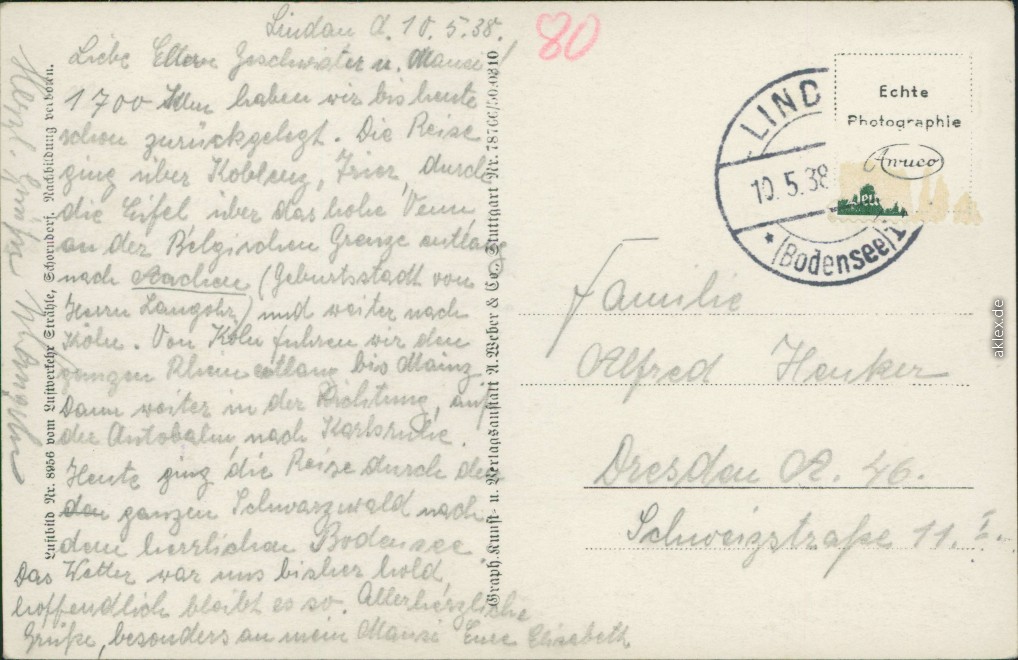 Lindau d. 10.5.38.
Liebe Eltern Geschwister u. Mausi!
1700 Klm haben wir bis heute
schon zurückgelegt. Die Reise
ging über Koblenz, Trier, durch
die Eifel über das hohe Venn
an der Belgischen Grenze entlang
nach Aachen (Geburtsstadt von
Herrn Langohr) und weiter nach
Köln. Von Köln fuhren wir den
ganzen Rhein entlang bis Mainz.
Dann weiter in der Richtung, auf
der Autobahn nach Karlsruhe.
Heute ging die Reise durch den
den ganzen Schwarzwald nach
dem herrlichen Bodensee
Das Wetter war uns bisher hold,
hoffendlich bleibt es so. Allerherzliche
Grüße, besonders an mein Mausi Eure Elisabeth
Herzl. Grüße
Luftbild Nr. 8956 vom Luftverkehr Strähle, Schorndorf. Nachbildung verboten.
Graph. Kunst- u. Verlagsanstalt A. Weber & Co., Stuttgart Nr. 78766/50.0810
80
LIND
10.5.38
(Bodensee) 1
Echte
Photographie
Familie
Alfred Henker
Dresden A. 46.
Schweizstraße 11. I.
aklex.de